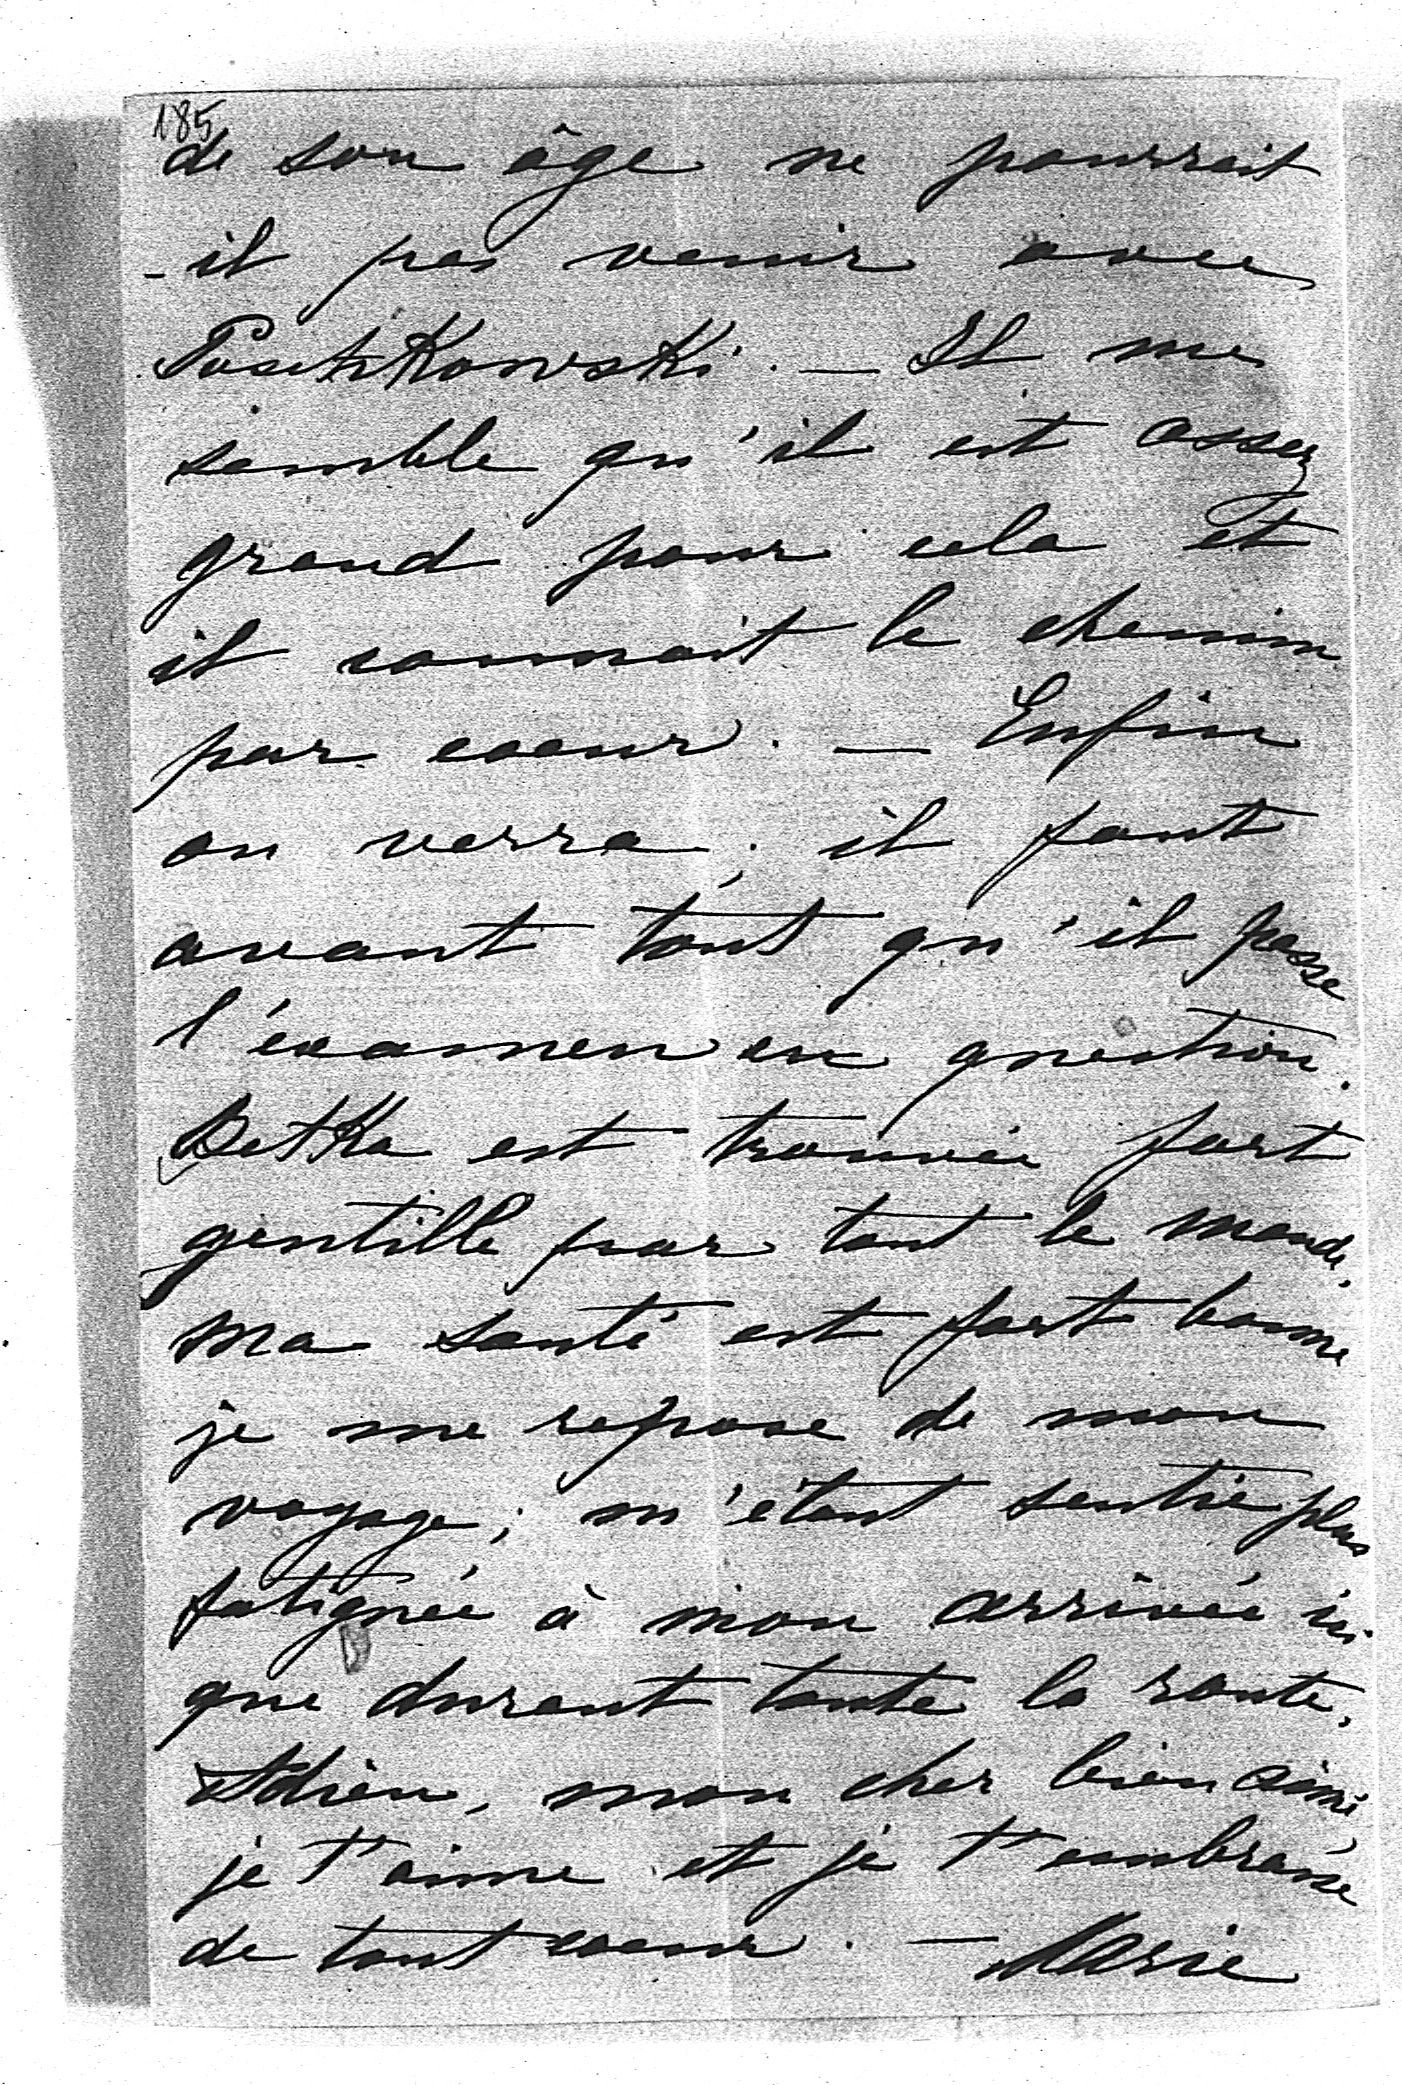 185
de son âge ne pourrait
- il pas venir avec
Poschkowski. — Il me
semble qu'il est assez
grand pour cela et
il connait le chemin
par coeur. — Enfin
on verra; il faut
avant tout qu'il passe
l'examen en question.
Detka est trouvée fort
gentille par tout le monde.
Ma santé est fort bonne
je me repose de mon
voyage; m'étant sentie plus
fatiguée à mon arrivée ici
que durant toute la route.
Adieu, mon cher bien aimé,
je t'aime et je t'embrasse
de tout coeur. — Marie